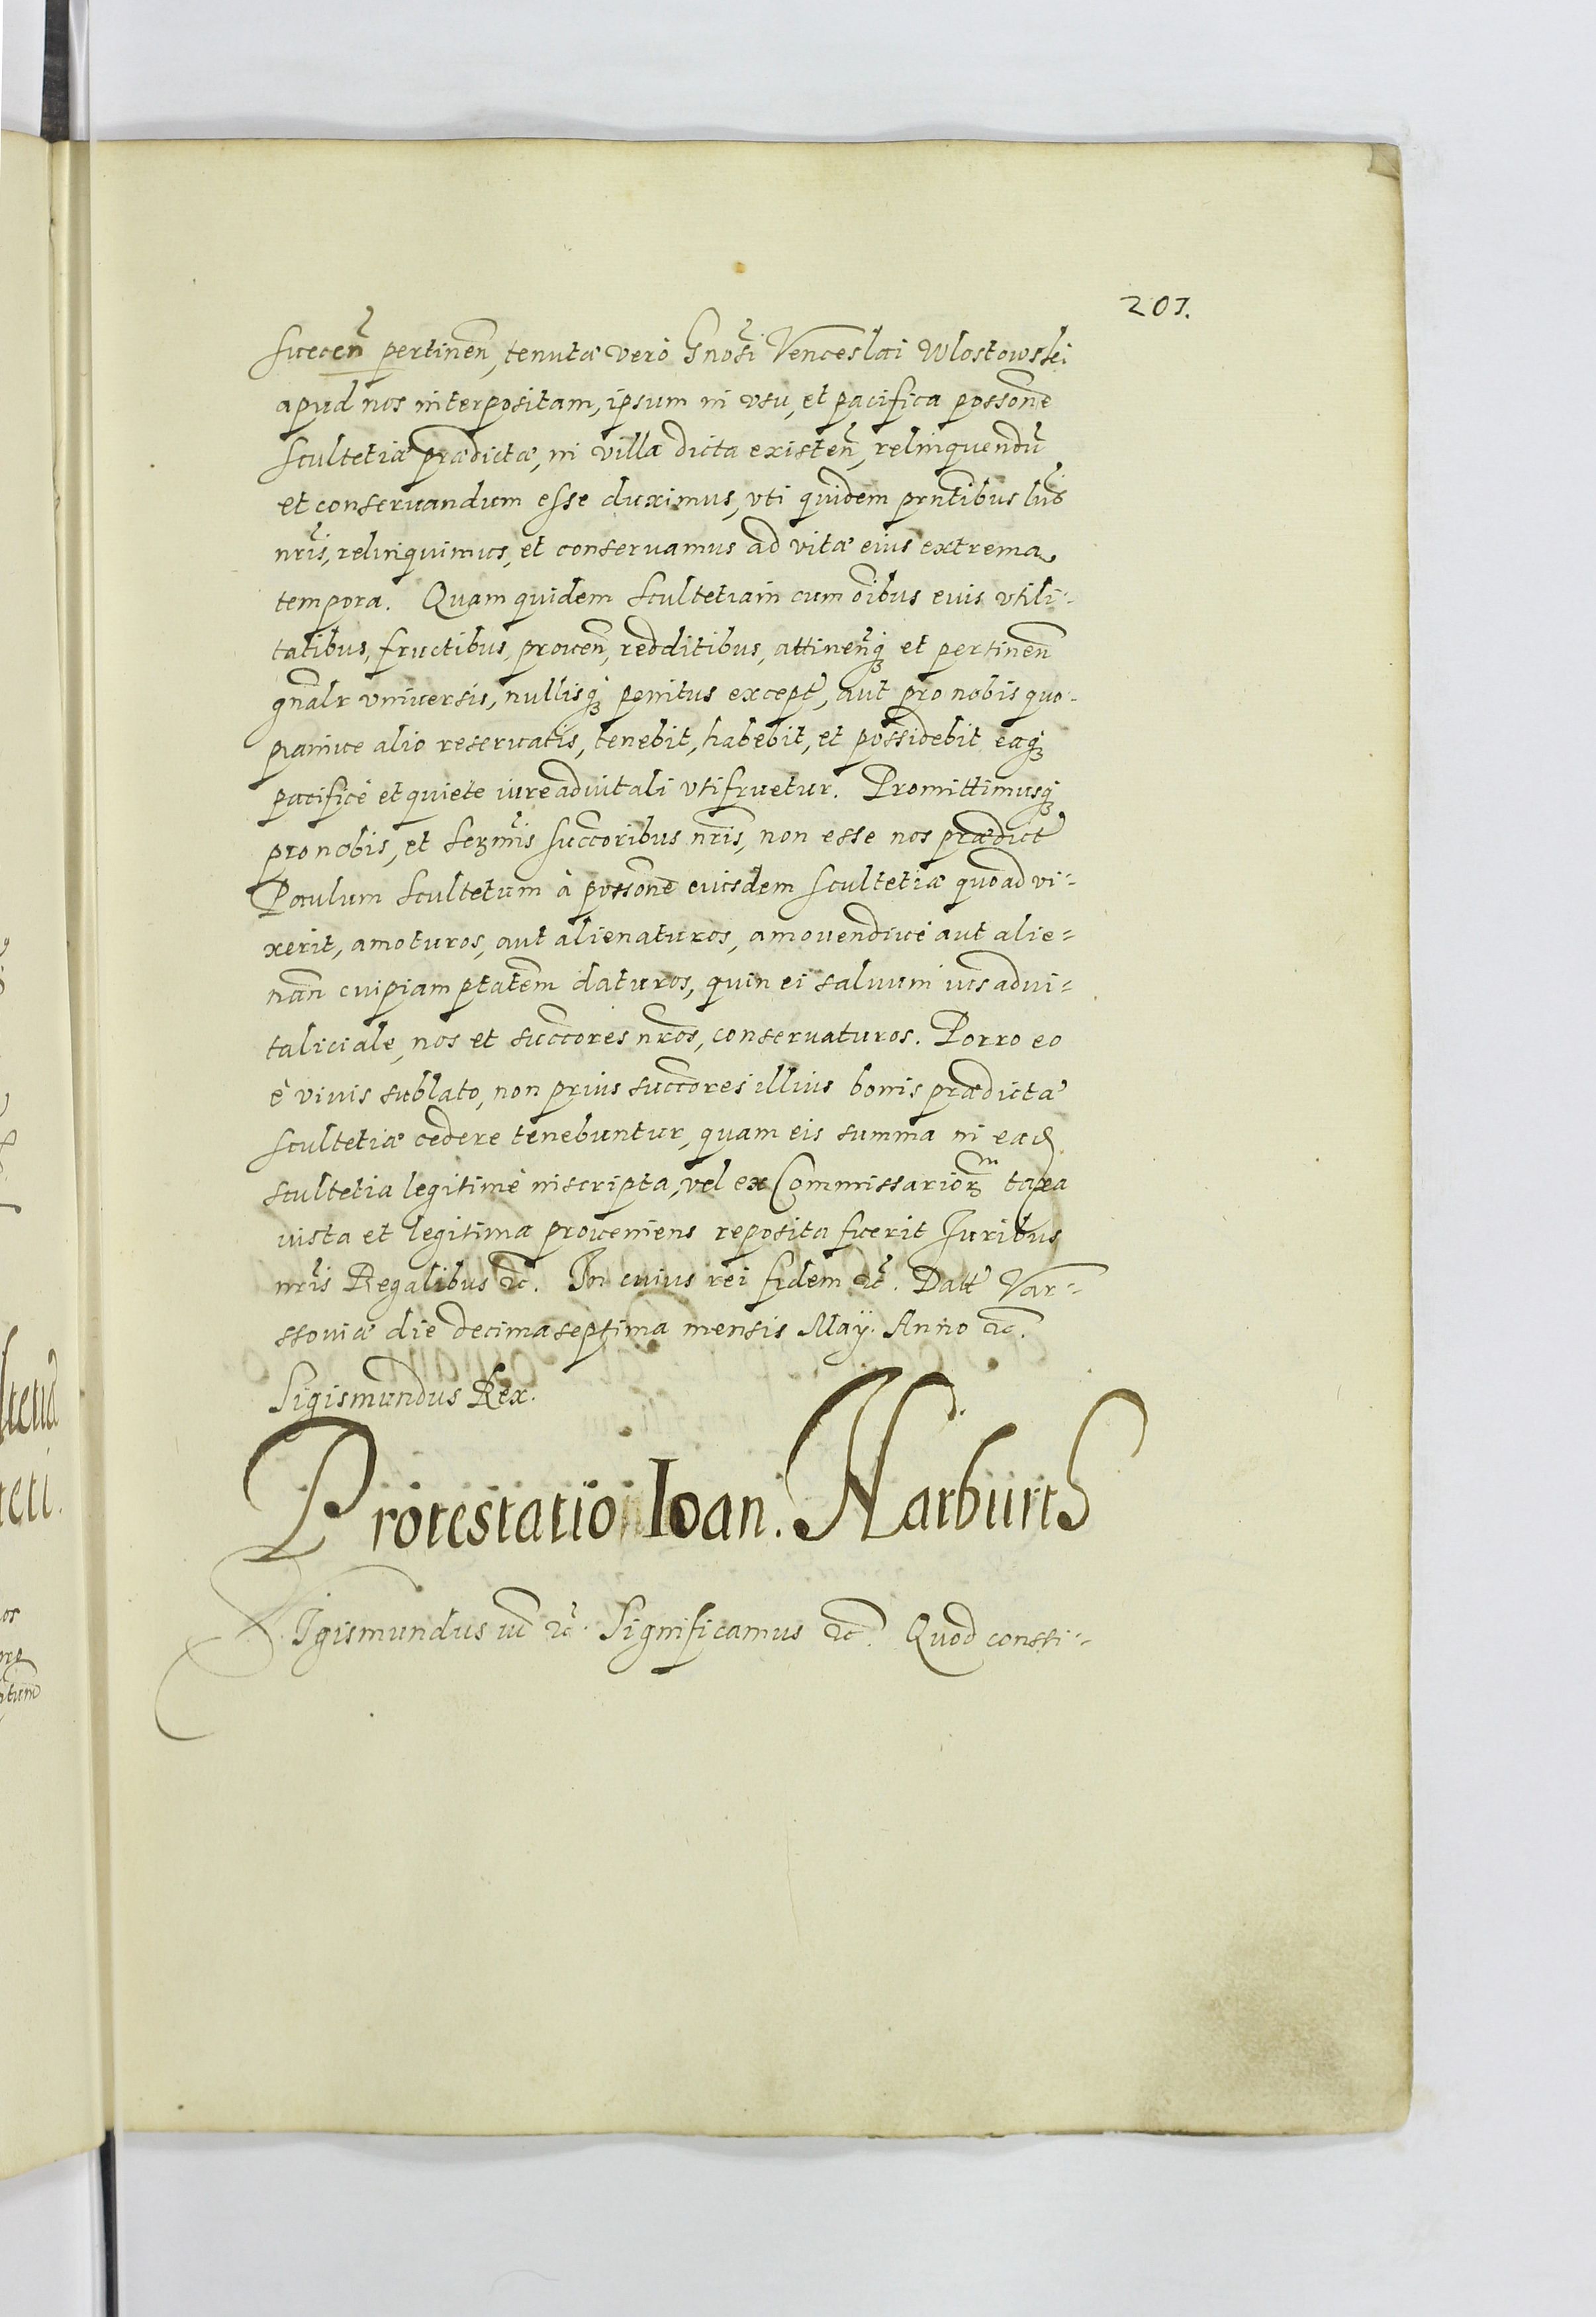 207.
suecen̄ pertinen̄, tenutæ verò Gnosi Venceslai Wlostowski
apud nos interpositam, ipsum in vsu, et pacifica possone
Scultetiæ prædictæ, in villa dicta existen̄, relinquendū
et conseruandum esse duximus, vti quidem pntibus lris
nris, relinquimus, et conseruamus ad vitæ eius extrema
tempora. Quam quidem Scultetiam cum oibus euis vtili-
tatibus, fructibus, prouen̄, redditibus, attinen̄q; et pertinen̄
gnalr vniuersis, nullisq; penitus except, aut pro nobis quo-
piamue alio reseruatis, tenebit, habebit, et possidebit eaq;
pacificè et quietè iure aduitali vtifruetur. Promittimusq;
pro nobis, et Sermis succoribus nris, non esse nos prædict
Paulum Scultetum à possone eiusdem Scultetiæ quoad vi-
xerit, amoturos, aut alienaturos, amouendiue aut alie-
nan̄ cuipiam ptatem daturos, quin ei saluum ius advi-
taliciale, nos et succores nros, conseruaturos. Porro eo
è viuis sublato, non prius succores illius bonis prædictæ
Scultetiæ cedere tenebuntur, quam eis summa in ead
Scultetia legitimè inscripta, vel ex Commissariorm taxa
iusta et legitima proueniens reposita fuerit Juribus
nris Regalibus etc. In cuius rei fidem etc. Datt Var-
ssouiæ die decima septima mensis Maÿ. Anno etc.
Sigismundus Rex.
Protestatio Ioan. Harburth
Sigismundus etc. Significamus etc. Quod consti-